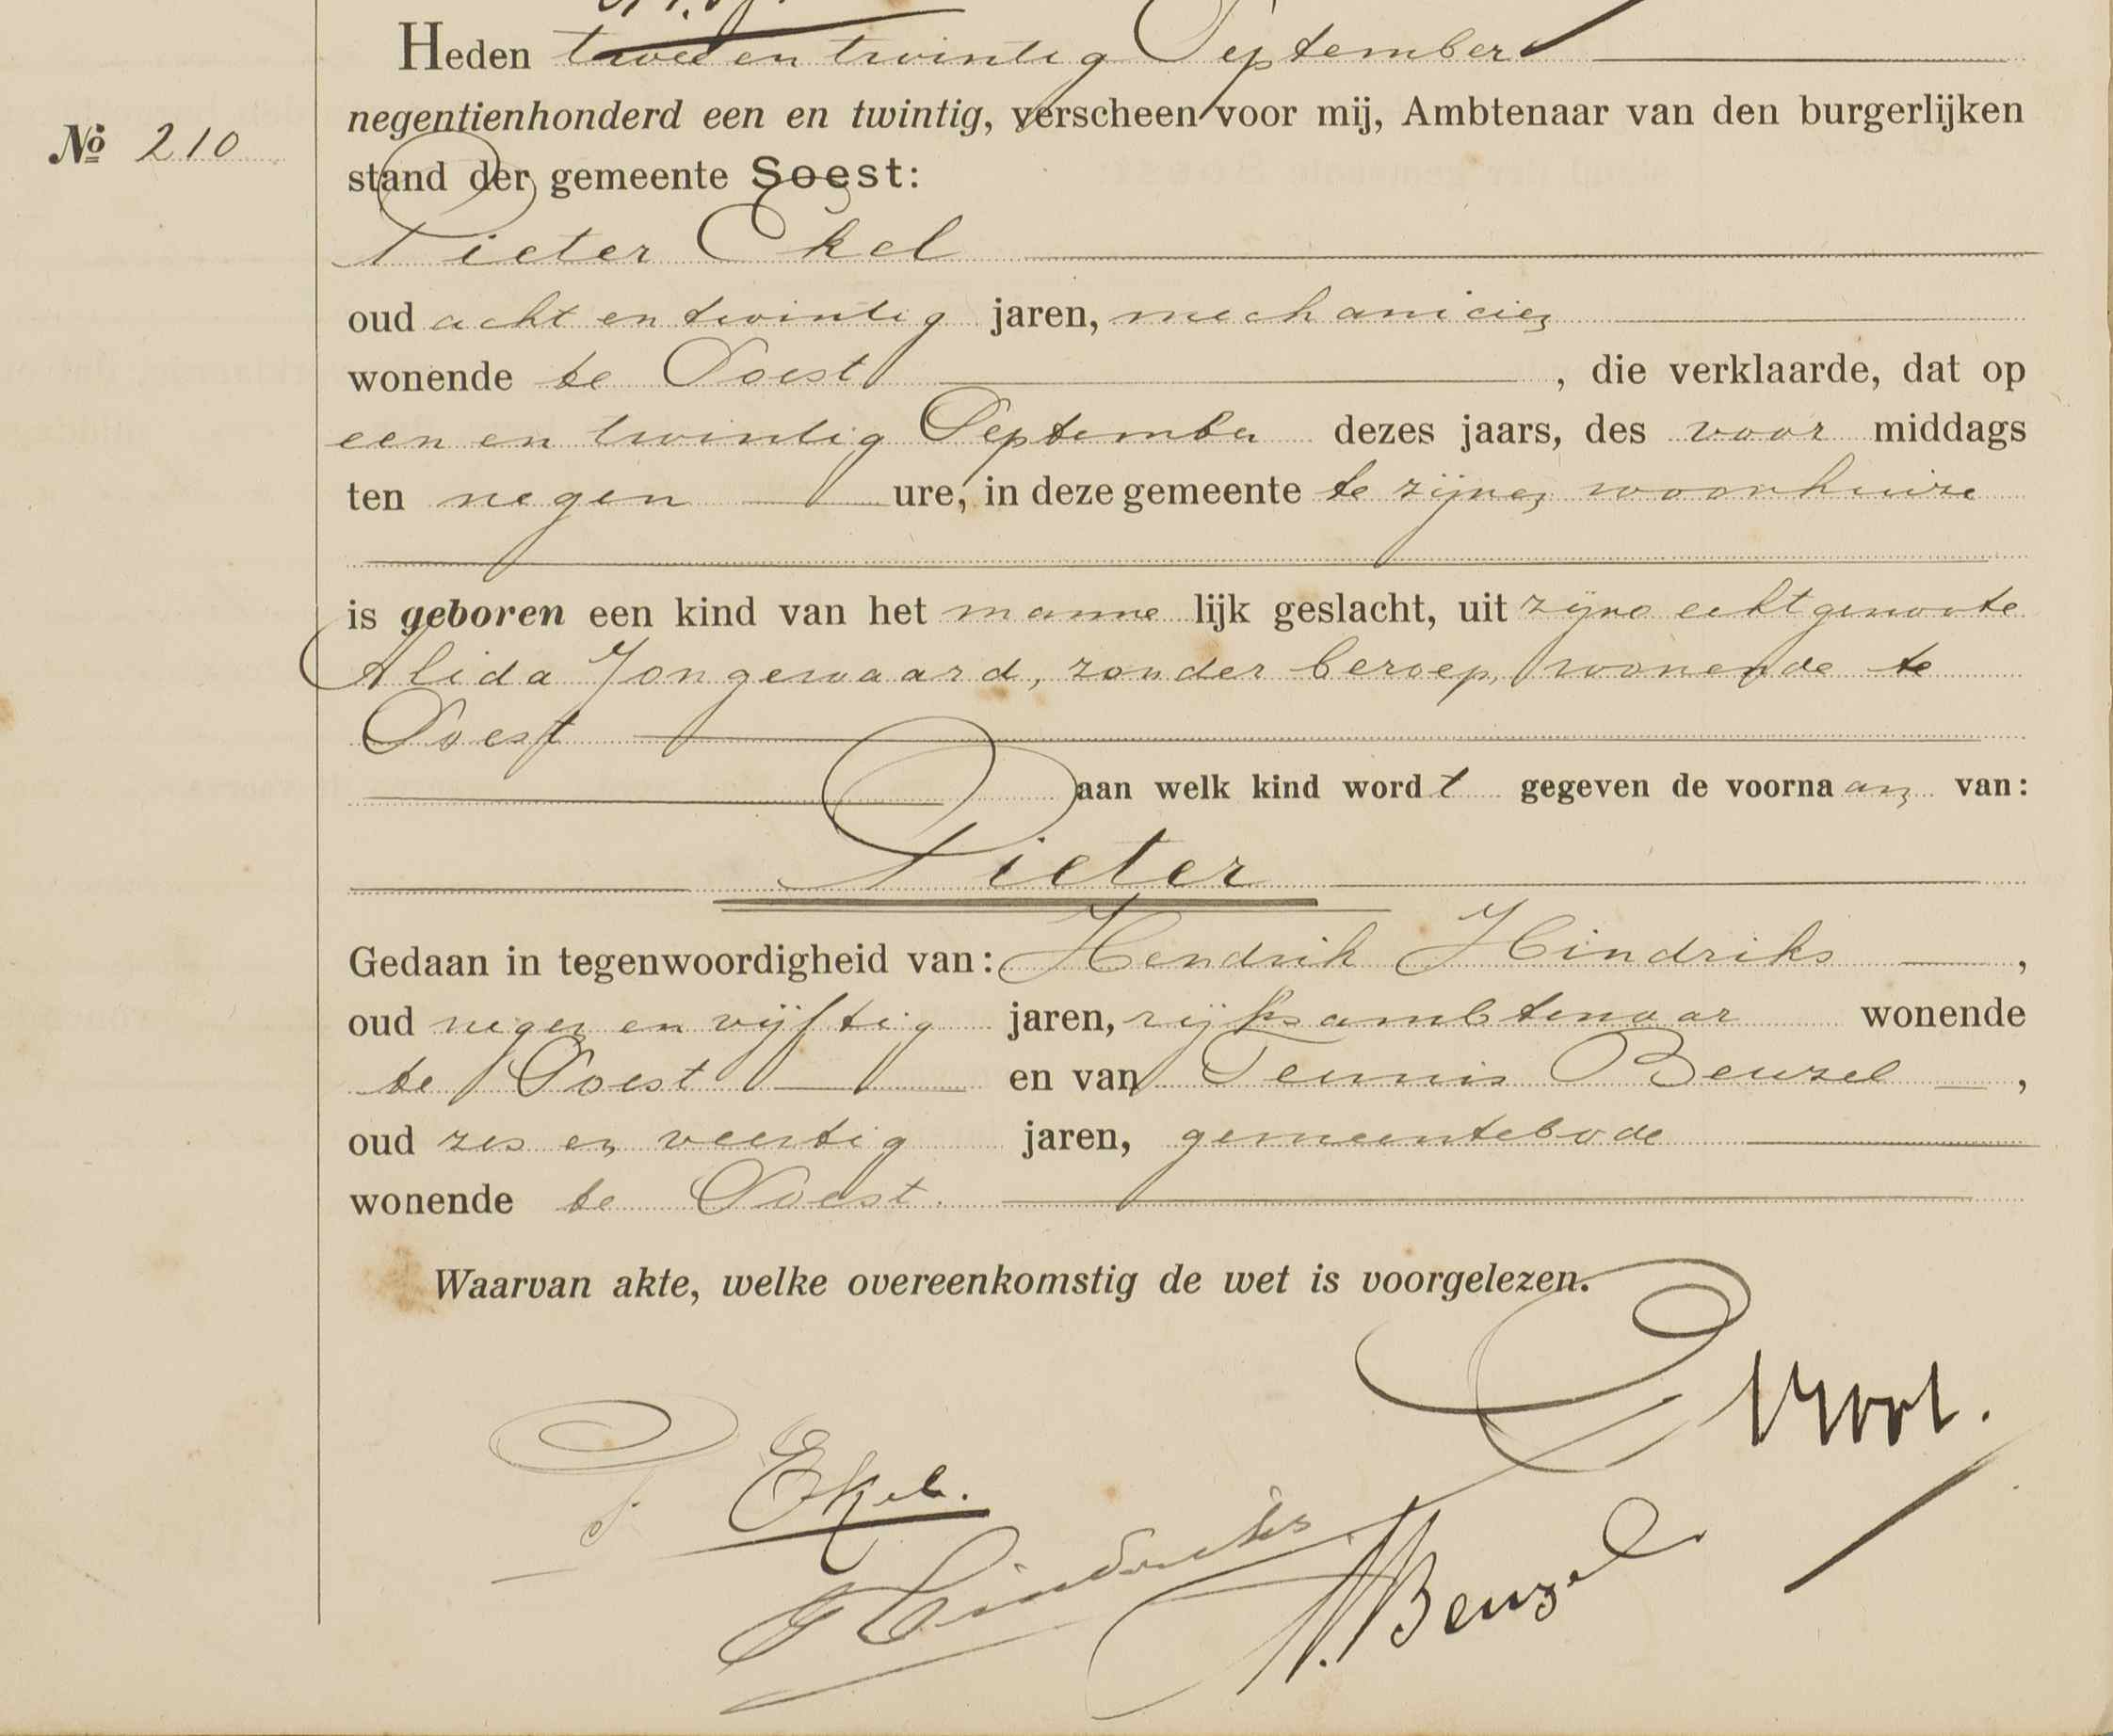 Heden twee en twintig September
negentienhonderd een en twintig, verscheen voor mij, Ambtenaar van den burgerlijken
No 210
stand der gemeente Soest:
Pieter Ekel
oud acht en twintig jaren, mechanicien
wonende te Soest, die verklaarde, dat op
een en twintig September dezes jaars, des voor middags
ten negen ure, in deze gemeente te zijnen woonhuize
is geboren een kind van het manne lijk geslacht, uit zijne echtgenoote
Alida Jongewaard, zonder beroep, wonende te
Soest
aan welk kind wordt gegeven de voornaam van:
Pieter
Gedaan in tegenwoordigheid van: Hendrik Hindriks,
oud negen en vijftig jaren, rijksambtenaar wonende
te Soest en van Teunis Beuzel,
oud zes en veertig jaren, gemeentebode
wonende te Soest.
Waarvan akte, welke overeenkomstig de wet is voorgelezen.
P. Ekel.
Hindriks
T. Beuzel